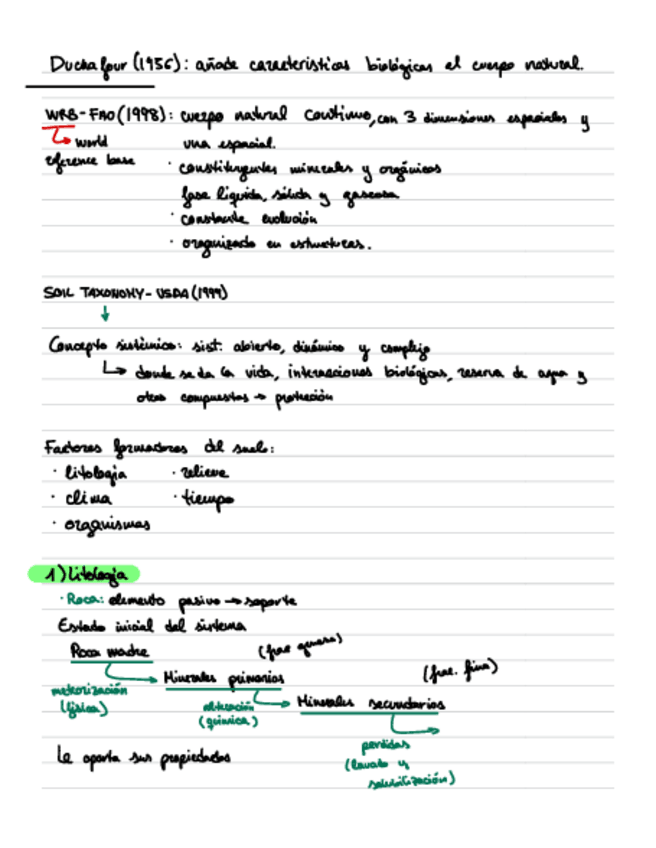 Duchafour (1956): añade características biológicas al cuerpo natural.
WRB-FAO (1998): cuerpo natural continuo, con 3 dimensiones espaciales y
world una espacial.
reference base · constituyentes minerales y orgánicos
fase líquida, sólida y gaseosa
· constante evolución
· organizado en estructuras.
SOIL TAXONOMY - USDA (1999)
Concepto sistémico: sist. abierto, dinámico y complejo
donde se da la vida, interacciones biológicas, reserva de agua y
otros compuestos → protección
Factores formadores del suelo:
· litología · relieve
· clima · tiempo
· organismos
1) Litología
· Roca: elemento pasivo → soporte
Estado inicial del sistema
Roca madre (frac gruesa)
Minerales primarios (frac. fina)
meteorización (física) alteración (química) Minerales secundarios
Le aporta sus propiedades perdidas
(lavado y
solubilización)